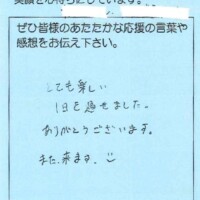 笑顔を心待ちにしています。
ぜひ皆様のあたたかな応援の言葉や
感想をお伝え下さい。
とても楽しい
1日を過せました。
ありがとうございます。
また、来ます。